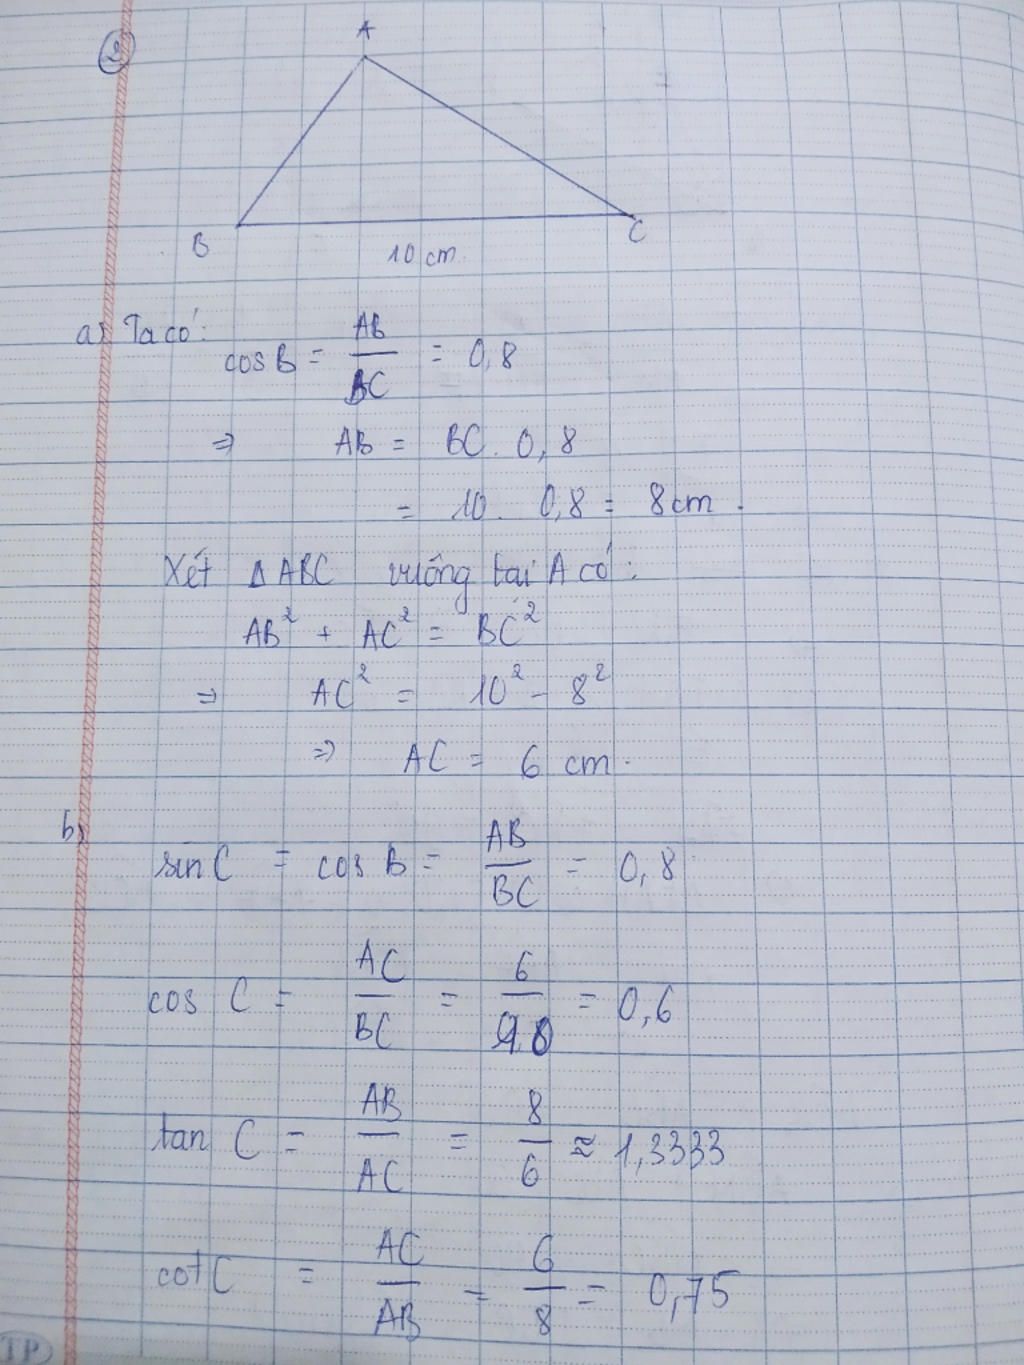 2
A
B
C
10 cm
a) Ta có:
cos B = AB/BC = 0,8
⇒ AB = BC . 0,8
= 10 . 0,8 = 8cm .
Xét Δ ABC vuông tại A có:
AB² + AC² = BC²
⇒ AC² = 10² - 8²
⇒ AC = 6 cm .
b)
sin C = cos B = AB/BC = 0,8
cos C = AC/BC = 6/10 = 0,6
tan C = AB/AC = 8/6 ≈ 1,3333
cot C = AC/AB = 6/8 = 0,75
TP